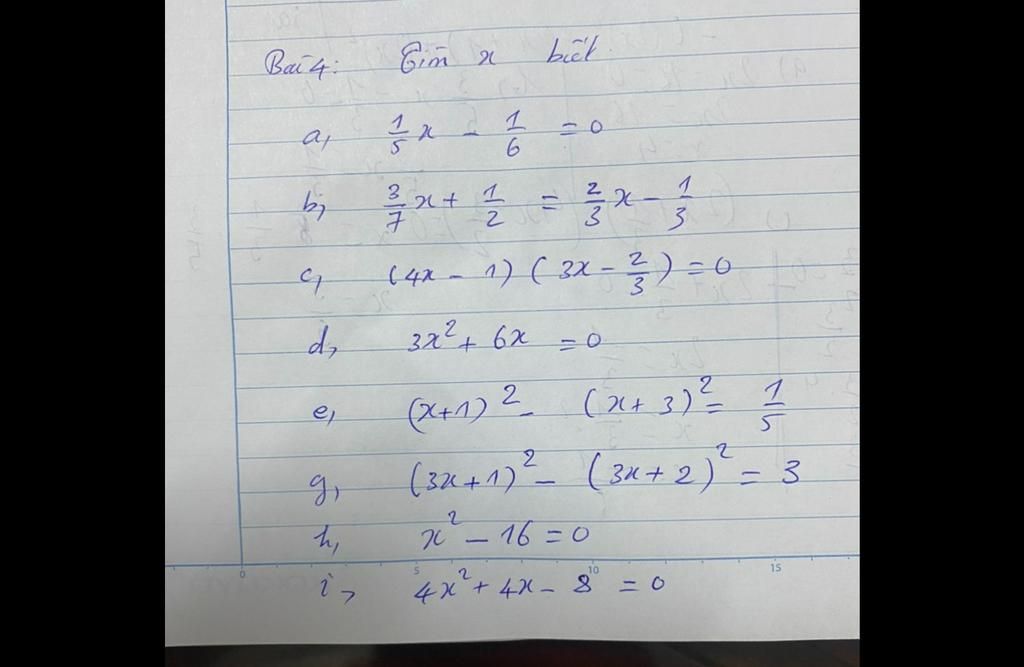 Bài 4: Tìm x biết
a, 1/5 x - 1/6 = 0
b, 3/7 x + 1/2 = 2/3 x - 1/3
c, (4x - 1) (3x - 2/3) = 0
d, 3x² + 6x = 0
e, (x+1)² - (x+3)² = 1/5
g, (3x+1)² - (3x+2)² = 3
h, x² - 16 = 0
0 5 10 15
i, 4x² + 4x - 8 = 0